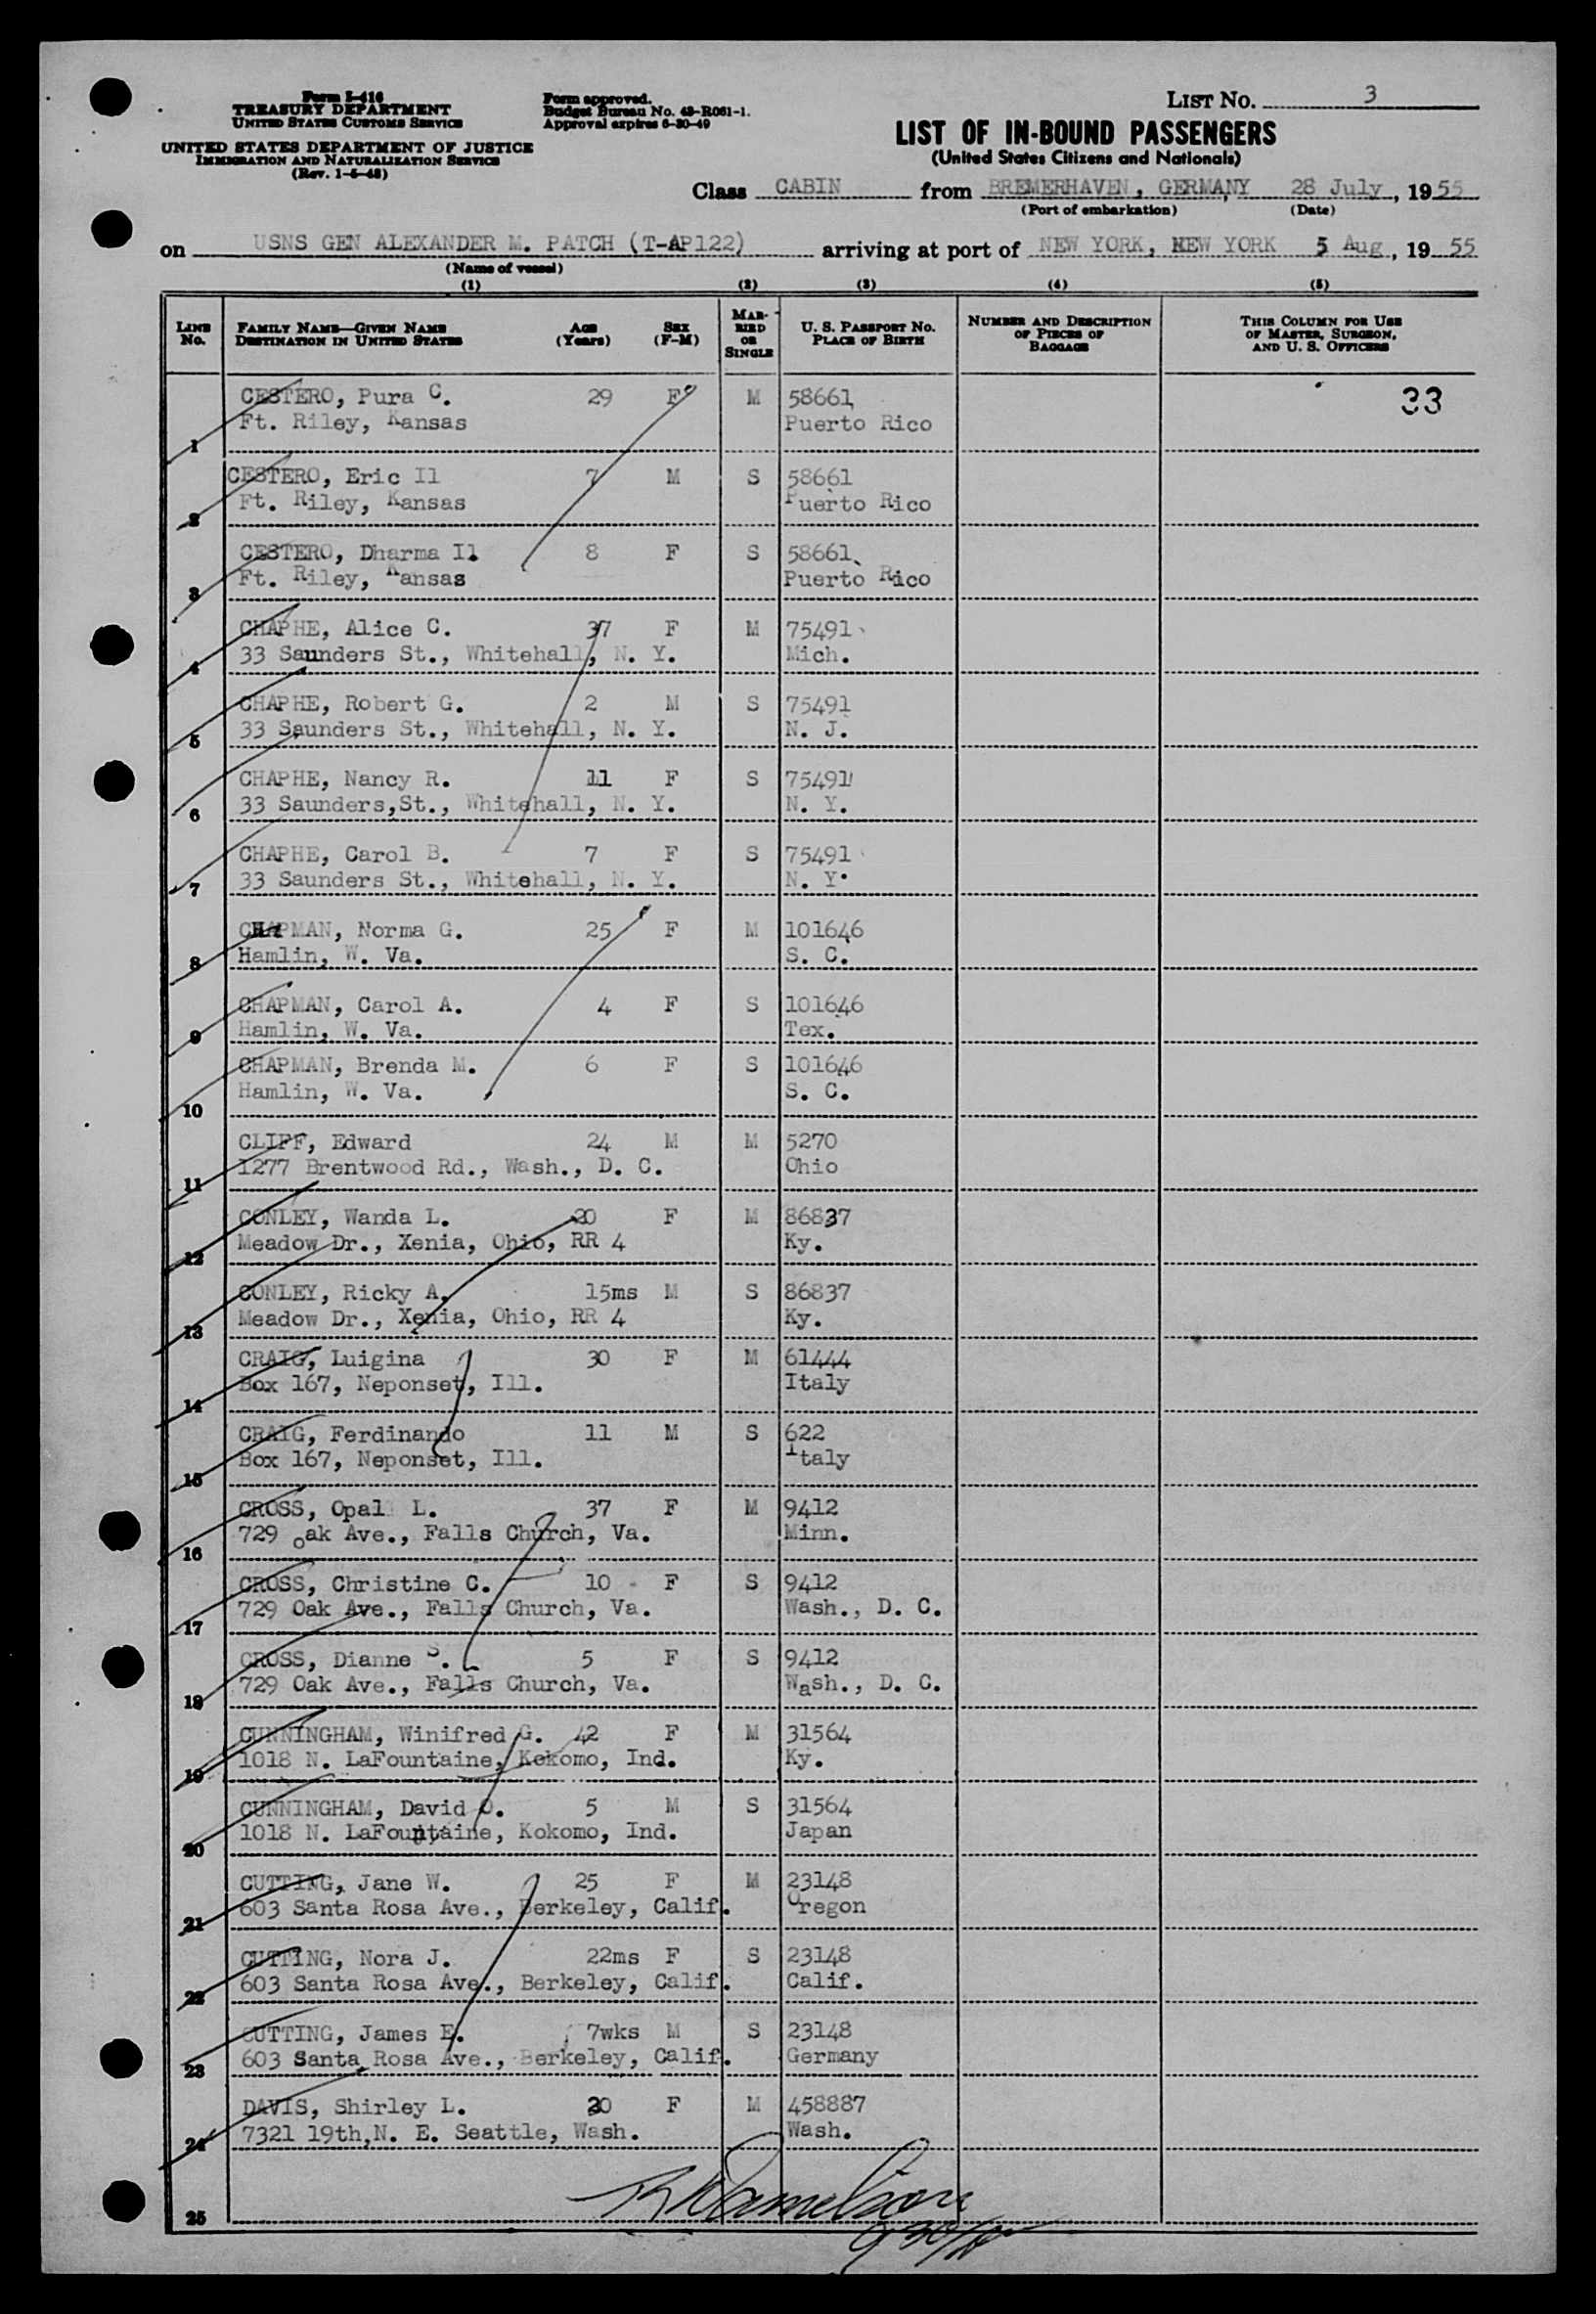 Form I-416
TREASURY DEPARTMENT
UNITED STATES CUSTOMS SERVICE
UNITED STATES DEPARTMENT OF JUSTICE
IMMIGRATION AND NATURALIZATION SERVICE
(Rev. 1-5-48)
Form approved.
Budget Bureau No. 43-R061-1.
Approval expires 6-30-49
LIST NO. 3
LIST OF IN-BOUND PASSENGERS
(United States Citizens and Nationals)
Class CABIN from BREMERHAVEN, GERMANY, 28 July, 1955
(Port of embarkation) (Date)
on USNS GEN ALEXANDER M. PATCH (T-AP122) arriving at port of NEW YORK, NEW YORK 5 Aug, 1955
(Name of vessel)
(1) (2) (3) (4) (5)
LINE NO. FAMILY NAME—GIVEN NAME DESTINATION IN UNITED STATES AGE (YEARS) SEX (F-M) MARRIED OR SINGLE U. S. PASSPORT NO. PLACE OF BIRTH NUMBER AND DESCRIPTION OF PIECES OF BAGGAGE THIS COLUMN FOR USE OF MASTER, SURGEON, AND U. S. OFFICERS
CESTERO, Pura C. 29 F M 58661 33
1 Ft. Riley, Kansas Puerto Rico
CESTERO, Eric Il 7 M S 58661
2 Ft. Riley, Kansas Puerto Rico
CESTERO, Dharma Il 8 F S 58661
3 Ft. Riley, Kansas Puerto Rico
CHAPHE, Alice C. 37 F M 75491
4 33 Saunders St., Whitehall, N. Y. Mich.
CHAPHE, Robert G. 2 M S 75491
5 33 Saunders St., Whitehall, N. Y. N. J.
CHAPHE, Nancy R. 11 F S 75491
6 33 Saunders,St., Whitehall, N. Y. N. Y.
CHAPHE, Carol B. 7 F S 75491
7 33 Saunders St., Whitehall, N. Y. N. Y.
CHAPMAN, Norma G. 25 F M 101646
8 Hamlin, W. Va. S. C.
CHAPMAN, Carol A. 4 F S 101646
9 Hamlin, W. Va. Tex.
CHAPMAN, Brenda M. 6 F S 101646
10 Hamlin, W. Va. S. C.
CLIFF, Edward 24 M M 5270
11 1277 Brentwood Rd., Wash., D. C. Ohio
CONLEY, Wanda L. 20 F M 86837
12 Meadow Dr., Xenia, Ohio, RR 4 Ky.
CONLEY, Ricky A. 15ms M S 86837
13 Meadow Dr., Xenia, Ohio, RR 4 Ky.
CRAIG, Luigina 30 F M 61444
14 Box 167, Neponset, Ill. Italy
CRAIG, Ferdinando 11 M S 622
15 Box 167, Neponset, Ill. Italy
CROSS, Opal L. 37 F M 9412
16 729 oak Ave., Falls Church, Va. Minn.
CROSS, Christine C. 10 F S 9412
17 729 Oak Ave., Falls Church, Va. Wash., D. C.
CROSS, Dianne S. 5 F S 9412
18 729 Oak Ave., Falls Church, Va. Wash., D. C.
CUNNINGHAM, Winifred G. 42 F M 31564
19 1018 N. LaFountaine, Kokomo, Ind. Ky.
CUNNINGHAM, David O. 5 M S 31564
20 1018 N. LaFountaine, Kokomo, Ind. Japan
CUTTING, Jane W. 25 F M 23148
21 603 Santa Rosa Ave., Berkeley, Calif. Oregon
CUTTING, Nora J. 22ms F S 23148
22 603 Santa Rosa Ave., Berkeley, Calif. Calif.
CUTTING, James E. 7wks M S 23148
23 603 Santa Rosa Ave., Berkeley, Calif. Germany
DAVIS, Shirley L. 20 F M 458887
24 7321 19th,N. E. Seattle, Wash. Wash.
25